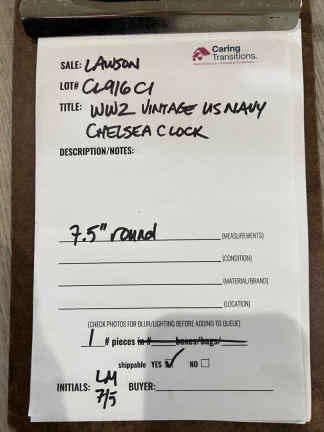 Caring
Transitions.
SALE: LAWSON
LOT# CL916C1
TITLE: WW2 VINTAGE US NAVY
CHELSEA CLOCK
DESCRIPTION/NOTES:
7.5" round (MEASUREMENTS)
(CONDITION)
(MATERIAL/BRAND)
(LOCATION)
(CHECK PHOTOS FOR BLUR/LIGHTING BEFORE ADDING TO QUEUE)
1 # pieces in # boxes/bags/
shippable YES ✓ NO
INITIALS: LM BUYER:
7/5